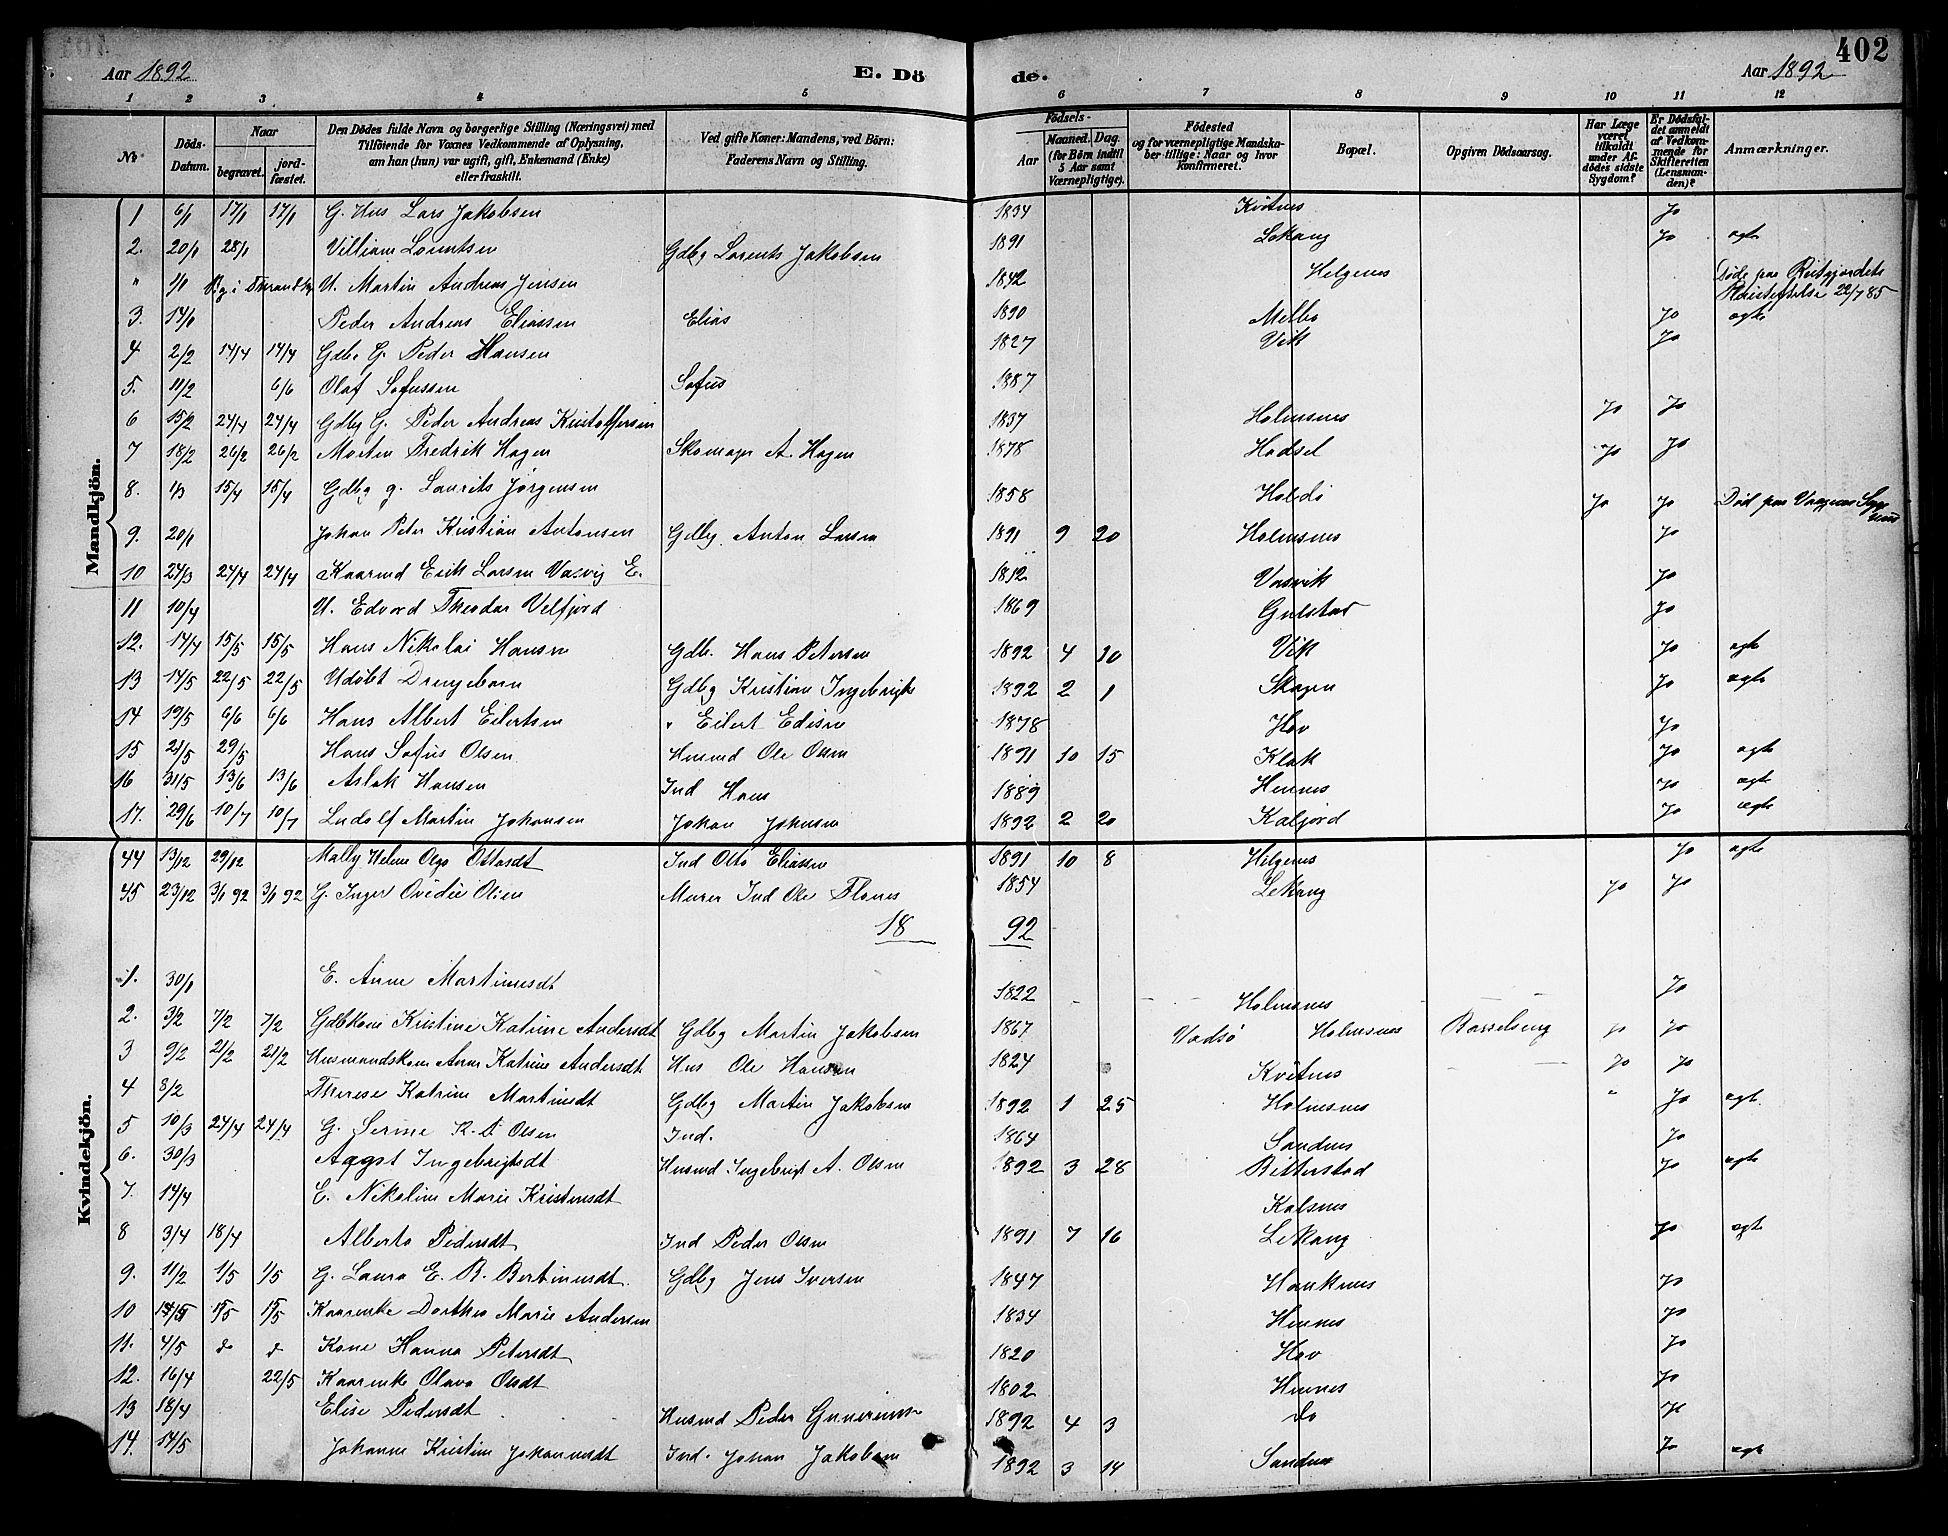 402
Aar 1892 E. Dö de. Aar 1892
1 2 3 4 5 6 7 8 9 10 11 12
No Döds-Datum. Naar begravet. jord-fæstet. Den Dödes fulde Navn og borgerlige Stilling (Næringsvei) med Tilföiende for Voxnes Vedkommende af Oplysning, om han (hun) var ugift, gift, Enkemand (Enke) eller fraskilt. Ved gifte Koner: Mandens, ved Börn: Faderens Navn og Stilling. Födsels- Aar Maaned. Dag. (for Börn indtil 5 Aar samt Værnepligtige). Födested og for værnepligtige Mandskaber tillige: Naar og hvor konfirmeret. Bopæl. Opgiven Dödsaarsag. Har Læge været tilkaldt under Afdödes sidste Sygdom? Er Dödsfaldet anmeldt af Vedkommende for Skifteretten (Lensmanden)? Anmærkninger.
Mandkjön.
1 6/1 17/1 17/1 G. Hus Lars Jakobsen 1834 Kvitnes Jo
2. 20/1 28/1 Villiam Lorentsen Gdbg Lorents Jakobsen 1891 Lekang Jo agte
" 1/1 U. Martin Andreas Jensen 1842 Helgenes Døde paa 22/7 85
3. 14/1 Peder Andreas Eliassen Elias 1890 Melbo Jo agte
4 2/2 14/4 14/4 Gdbr G. Peder Hansen 1827 Vik Jo
5. 11/2 6/6 Olaf Sofussen Sofus 1887
6 15/2 24/4 24/4 Gdbg G. Peder Andreas Kristoffersen 1837 Holmsnes Jo Jo
7 18/2 26/2 26/2 Morten Fredrik Hagen Skomager A. Hagen 1878 Hadsel Jo Jo
8. 1/3 15/4 15/4 Gdbg g. Laurits Jørgensen 1858 Haldø Jo Jo Død paa
9. 20/1 Johan Peter Kristian Antonsen Gdbg Anton Larsen 1891 9 20 Holmsnes Jo
10 24/3 24/4 24/4 Kaarmd Erik Larsen Vasvig E. 1812 Vasvik Jo
11 10/4 U. Edvard Theodor Velfjord 1869 Gulstad Jo
12. 14/4 15/5 15/5 Hans Nikolai Hansen Gdb. Hans Petersen 1892 4 10 Vik Jo agte
13 14/5 22/5 22/5 Udøbt Drengebarn Gdbg Kristian Ingebrigts 1892 2 1 Skagen Jo agte
14 19/5 6/6 6/6 Hans Albert Eilertsen " Eilert 1878 Hov Jo
15 21/5 29/5 Hans Sofus Olsen Husmd Ole Olsen 1891 10 15 Klak Jo agte
16 31/5 13/6 13/6 Aslak Hansen Ind Hans 1889 Hennes Jo agte
17. 29/6 10/7 10/7 Ludolf Martin Johansen Johan Johnsen 1892 2 20 Kaljord Jo ægte
Kvindekjön.
44 13/12 29/12 Mally Helene Olga Ottosdt Ind Otto Eliassen 1891 10 8 Helgenes Jo agte
45 23/12 3/1 92 3/1 92 G. Inger Ovidie Olsen Murer Ind Ole Flones 1854 Lekang Jo Jo
18 92
1. 30/1 E. Anne Martinusdt 1822 Holmsnes Jo
2. 3/2 7/2 7/2 Gdbkone Kristine Katrine Andersdt Gdbg Martin Jakobsen 1867 Vadsø Holmsnes Barselseng Jo Jo
3 9/2 21/2 21/2 Husmandskone Anne Katrine Andersdt Hus Ole Hansen 1824 Kvitnes Jo Jo
4 8/2 Therese Katrine Martinsdt Gdbg Martin Jakobsen 1892 1 25 Holmsnes " Jo agt.
5 10/3 24/4 24/4 G. Serine K. D Olsen Ind. 1864 Sandnes Jo
6. 30/3 Aagot Ingebrigtsdt Husmd Ingebrigt A. Olsen 1892 3 28 Bitterstad Jo agte
7. 14/4 E. Nikoline Marie Kristensdt Kalsnes
8 3/4 18/4 Alberta Pedersdt Ind Peder Olsen 1891 7 16 Lekang Jo agte
9. 11/2 1/5 1/5 G. Laura E. B. Bertinusdt. Gdbg Jens Iversen 1847 Hauknes Jo
10 1/5 1/5 Kaarenke Dorthea Marie Andersen 1834 Hennes Jo
11. 4/5 do do Kone Hanna Petersdt 1820 Hov Jo
12. 16/4 22/5 Kaarenke Olava Olsdt 1802 Hennes Jo
13 18/4 Elise Pedersdt. Husmd Peder 1892 4 3 do Jo
14. 14/5 Johanne Kristine Johannesdt Ind. Johan Jakobsen 1892 3 14 Sandnes Jo agte